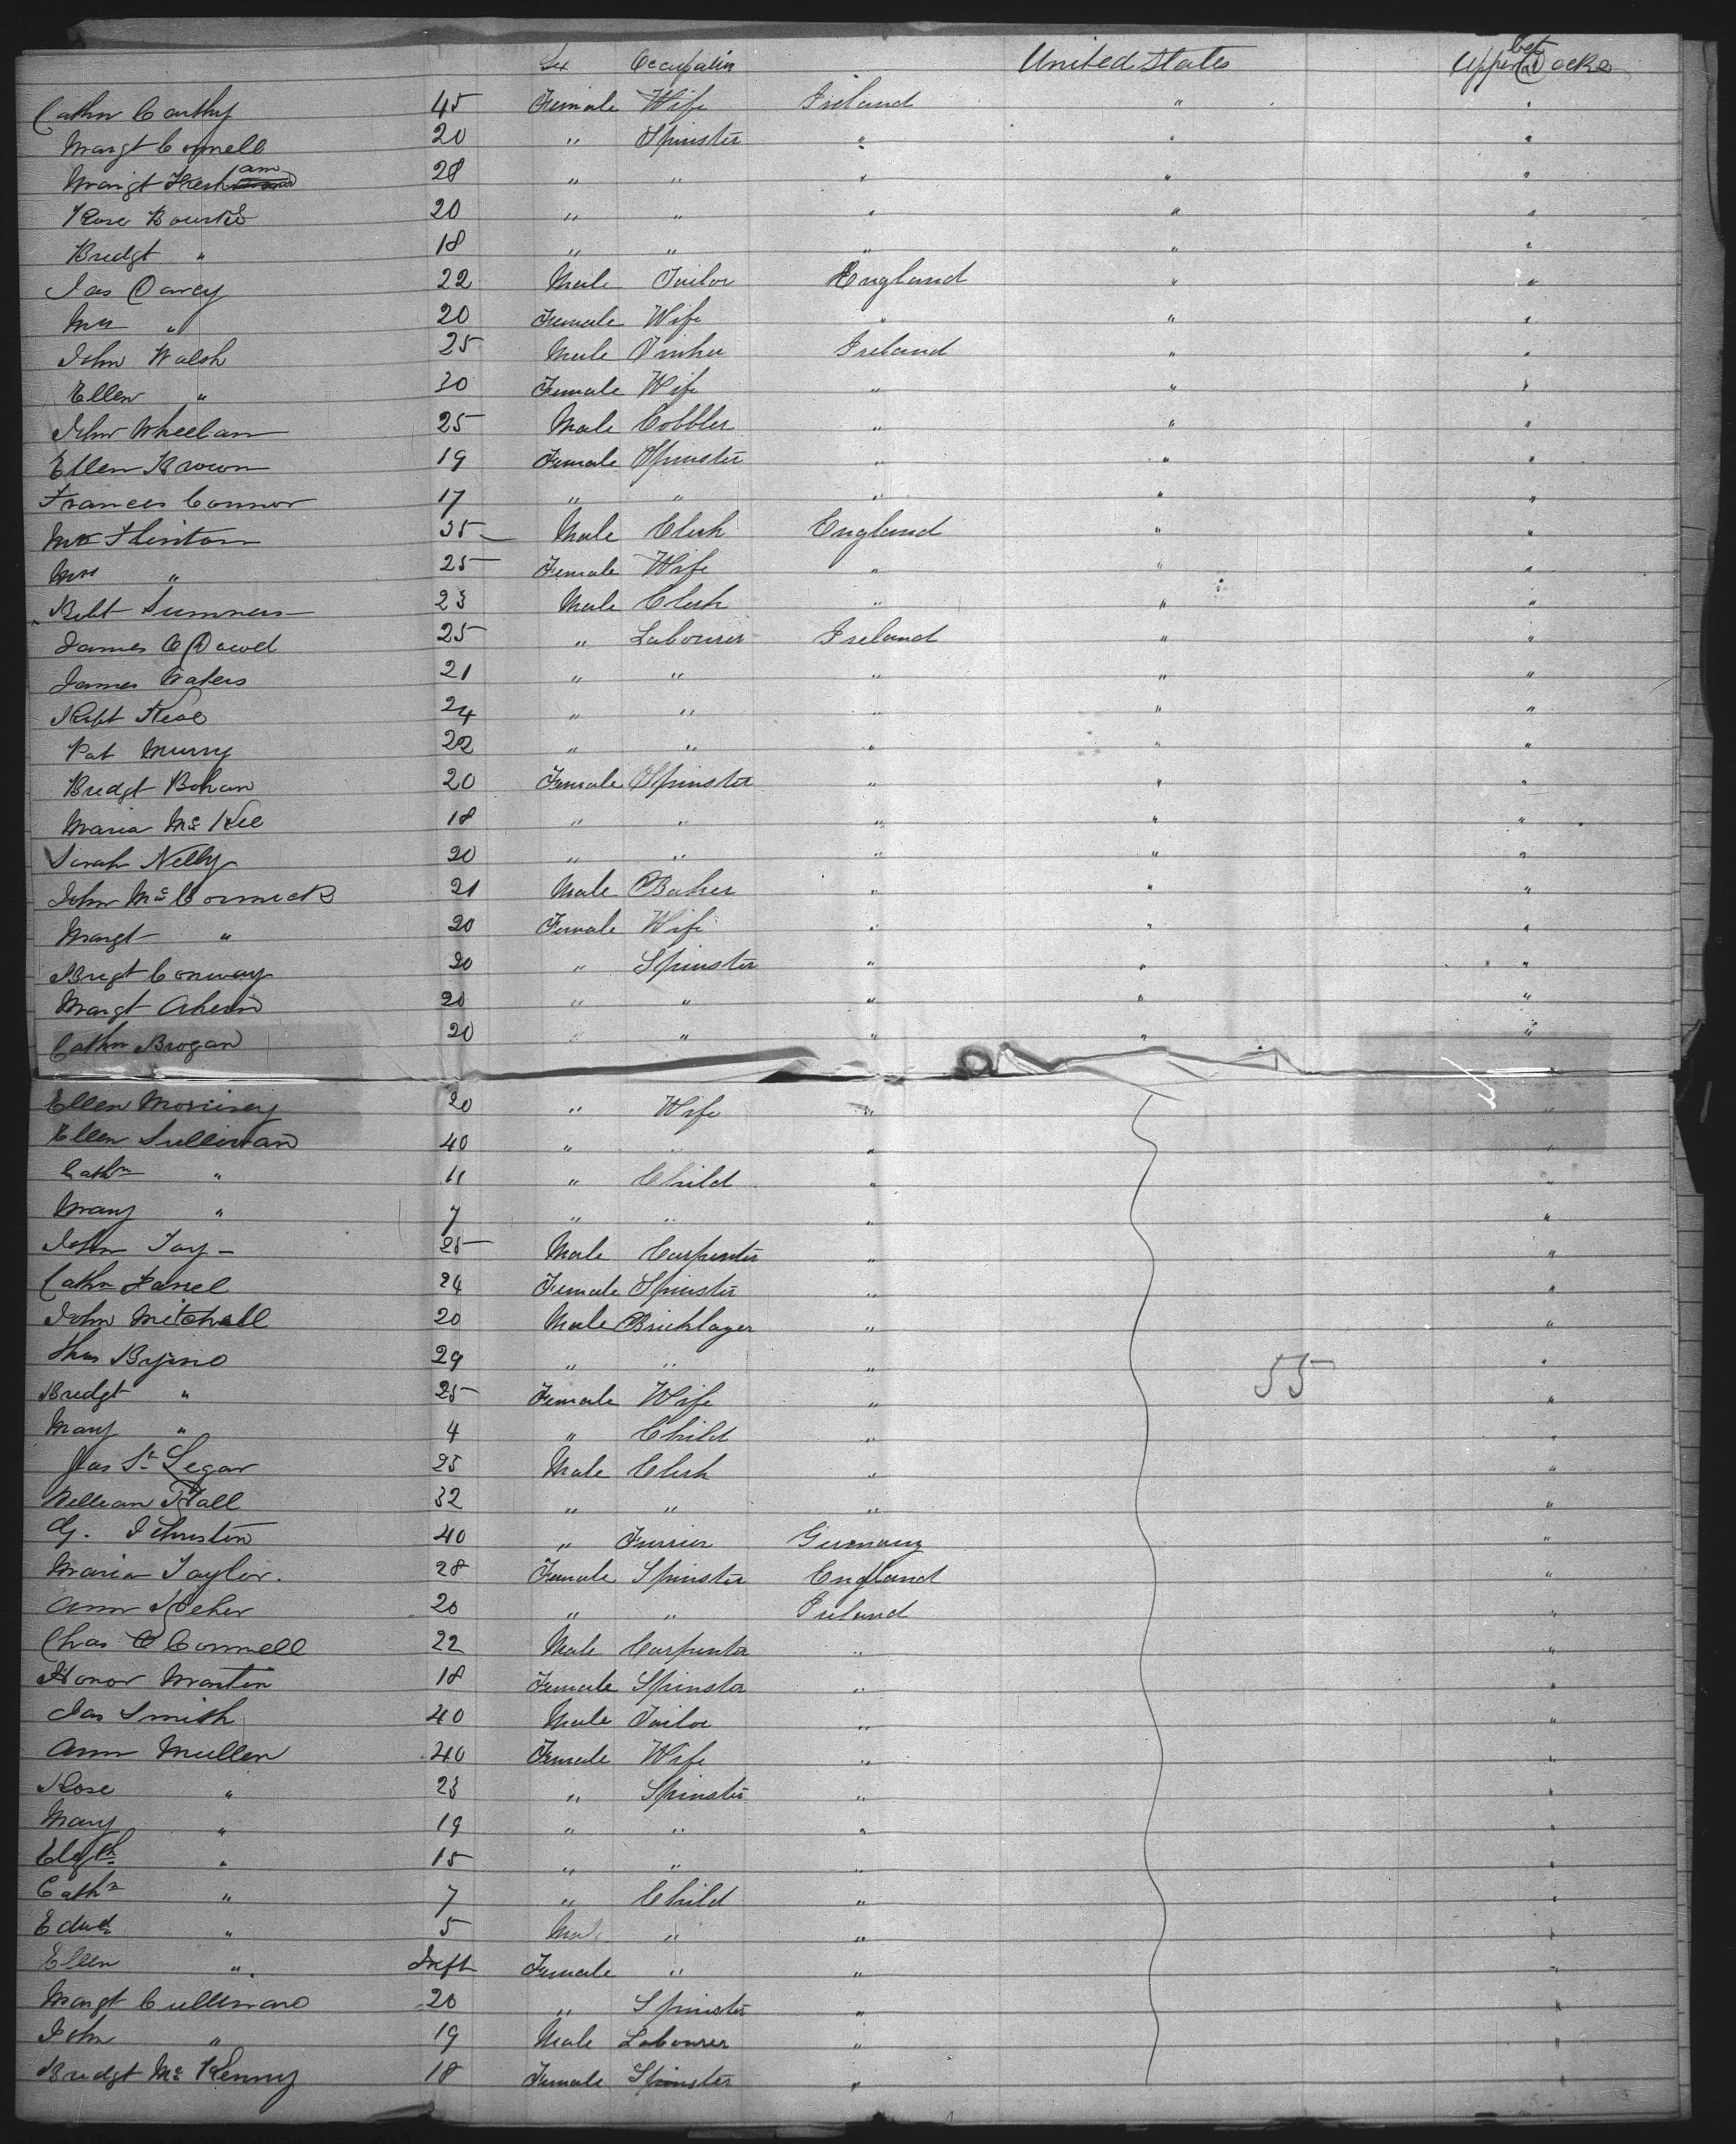 Sex Occupation United States Upper bet Decks
Cathn Carthy 45 Female Wife Ireland " "
Margt Connell 20 " Spinster " " "
Margt 28 " " " " "
Rose Bourke 20 " " " " "
Bredgt " 18 " " " " "
Jas Darcy 22 Male Tailor England " "
Mrs " 20 Female Wife " " "
John Walsh 25 Male Tinker Ireland " "
Ellen " 30 Female Wife " " "
John Wheelan 25 Male Cobbler " " "
Ellen Brown 19 Female Spinster " " "
Frances Connor 17 " " " " "
Mr Flinton 35 Male Clerk England " "
Mrs " 25 Female Wife " " "
Robt Summers 23 Male Clerk " " "
James O Dowd 25 " Labourer Ireland " "
James Waters 21 " " " " "
Robt 24 " " " " "
Pat Murry 22 " " " " "
Bredgt Bohan 20 Female Spinster " " "
Maria Mc Kee 18 " " " " "
Sarah Nelly 20 " " " " "
John Mc Cormick 21 Male Baker " " "
Margt " 20 Female Wife " " "
Bregt Conway 20 " Spinster " " "
Margt Ahern 20 " " " " "
Cathn Brogan 20 " " " " "
Ellen Morrisey 20 " Wife " "
Ellen Sullivan 40 " " " "
Cathn " 11 " Child " "
Mary " 7 " " " "
John Tay 25 Male Carpenter " "
Cathn Farrel 24 Female Spinster " "
John Mitchell 20 Male Bricklayer " "
Thos Byrne 29 " " " "
Bredgt " 25 Female Wife " 55 "
Mary " 4 " Child " "
Jas St Legar 25 Male Clerk " "
William Hall 32 " " " "
G. Johnston 40 " Furrier Germany "
Maria Taylor. 28 Female Spinster England "
Ann 20 " " Ireland "
Chas O Connell 22 Male Carpenter " "
Honor Martin 18 Female Spinster " "
Jas Smith 40 Male Tailor " "
Ann Mullen 40 Female Wife " "
Rose " 23 " Spinster " "
Mary " 19 " " " "
Elizth " 15 " " " "
Cathn " 7 " Child " "
Edwd " 5 Male " " "
Ellen " Inft Female " " "
Margt Cullinane 20 " Spinster " "
John " 19 Male Labourer " "
Bredgt Mc Kenny 18 Female Spinster " "